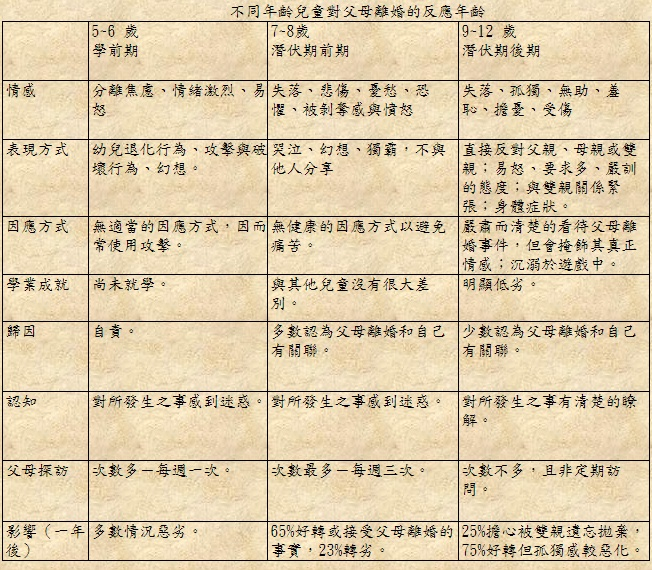 不同年齡兒童對父母離婚的反應年齡
5~6 歲
學前期
7~8歲
潛伏期前期
9~12 歲
潛伏期後期
情感
分離焦慮、情緒激烈、易
怒
失落、悲傷、憂愁、恐
懼、被剝奪感與憤怒
失落、孤獨、無助、羞
恥、擔憂、受傷
表現方式
幼兒退化行為、攻擊與破
壞行為、幻想。
哭泣、幻想、獨霸，不與
他人分享
直接反對父親、母親或雙
親；易怒、要求多、嚴訓
的態度；與雙親關係緊
張；身體症狀。
因應方式
無適當的因應方式，因而
常使用攻擊。
無健康的因應方式以避免
痛苦。
嚴肅而清楚的看待父母離
婚事件，但會掩飾其真正
情感；沉溺於遊戲中。
學業成就
尚未就學。
與其他兒童沒有很大差
別。
明顯低劣。
歸因
自責。
多數認為父母離婚和自己
有關聯。
少數認為父母離婚和自己
有關聯。
認知
對所發生之事感到迷惑。
對所發生之事感到迷惑。
對所發生之事有清楚的瞭
解。
父母探訪
次數多－每週一次。
次數最多－每週三次。
次數不多，且非定期訪
問。
影響（一年
後）
多數情況惡劣。
65%好轉或接受父母離婚的
事實，23%轉劣。
25%擔心被雙親遺忘拋棄，
75%好轉但孤獨感較惡化。